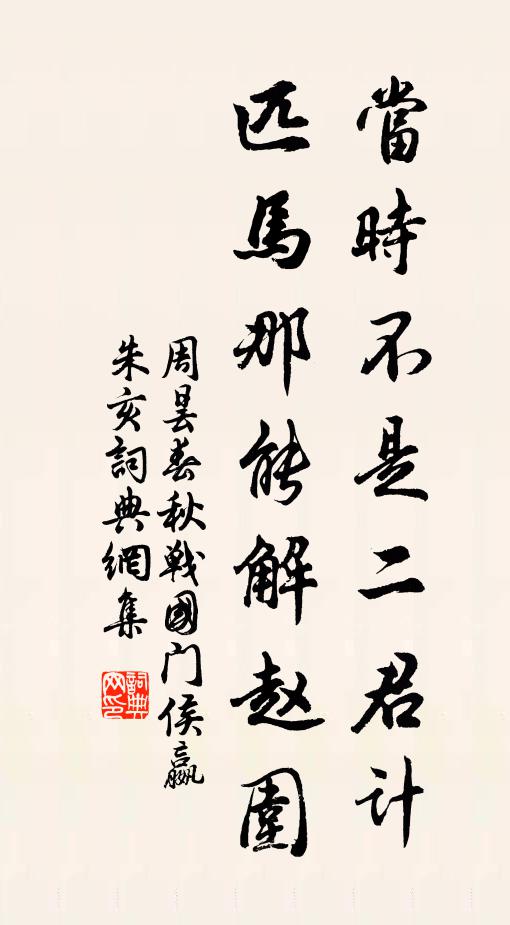 當時不是二君計
匹馬那能解赵圍
周昙春秋戰國门侯嬴
朱亥詞典網集
詞典网印